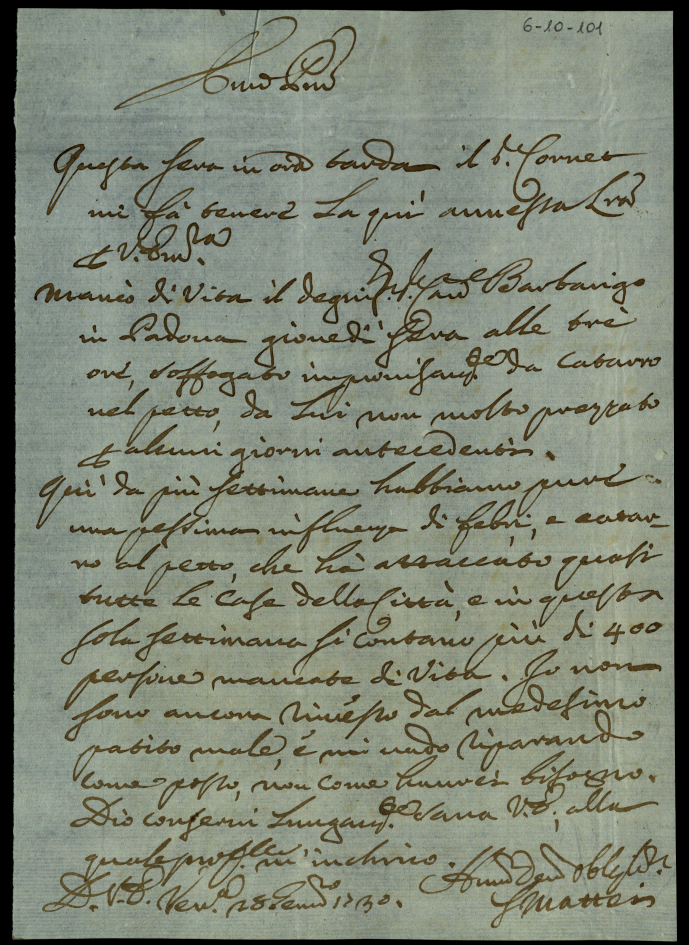 6-10-101
Questa sera in ora tarda il S.r Cornet
mi fà tenere la qui annessa Lra
V. Em.za
Mancò di Vita il degniss. Sig. Card.e Barbarigo
in Padoua giouedì sera alle trè
ore, soffogato improuisam.te da catarro
nel petto, da lui non molto prezzato
alcuni giorni antecedenti.
Quì da più settimane habbiamo pure
una pessima influenza di febri, e catar-
ro al petto, che hà attaccato quasi
tutte le Case della Città, e in questa
sola settimana si contano più di 400
persone mancate di Vita. Io non
sono ancora rimesso dal medesimo
patito male, e mi uado riparando
come posso, non come haurei bisogno.
Dio conserui lungam.te sana V. E., alla
quale prof.te m'inchino.
D. V. E. Ven.a 28 Gen.ro 1730.
S Matteis